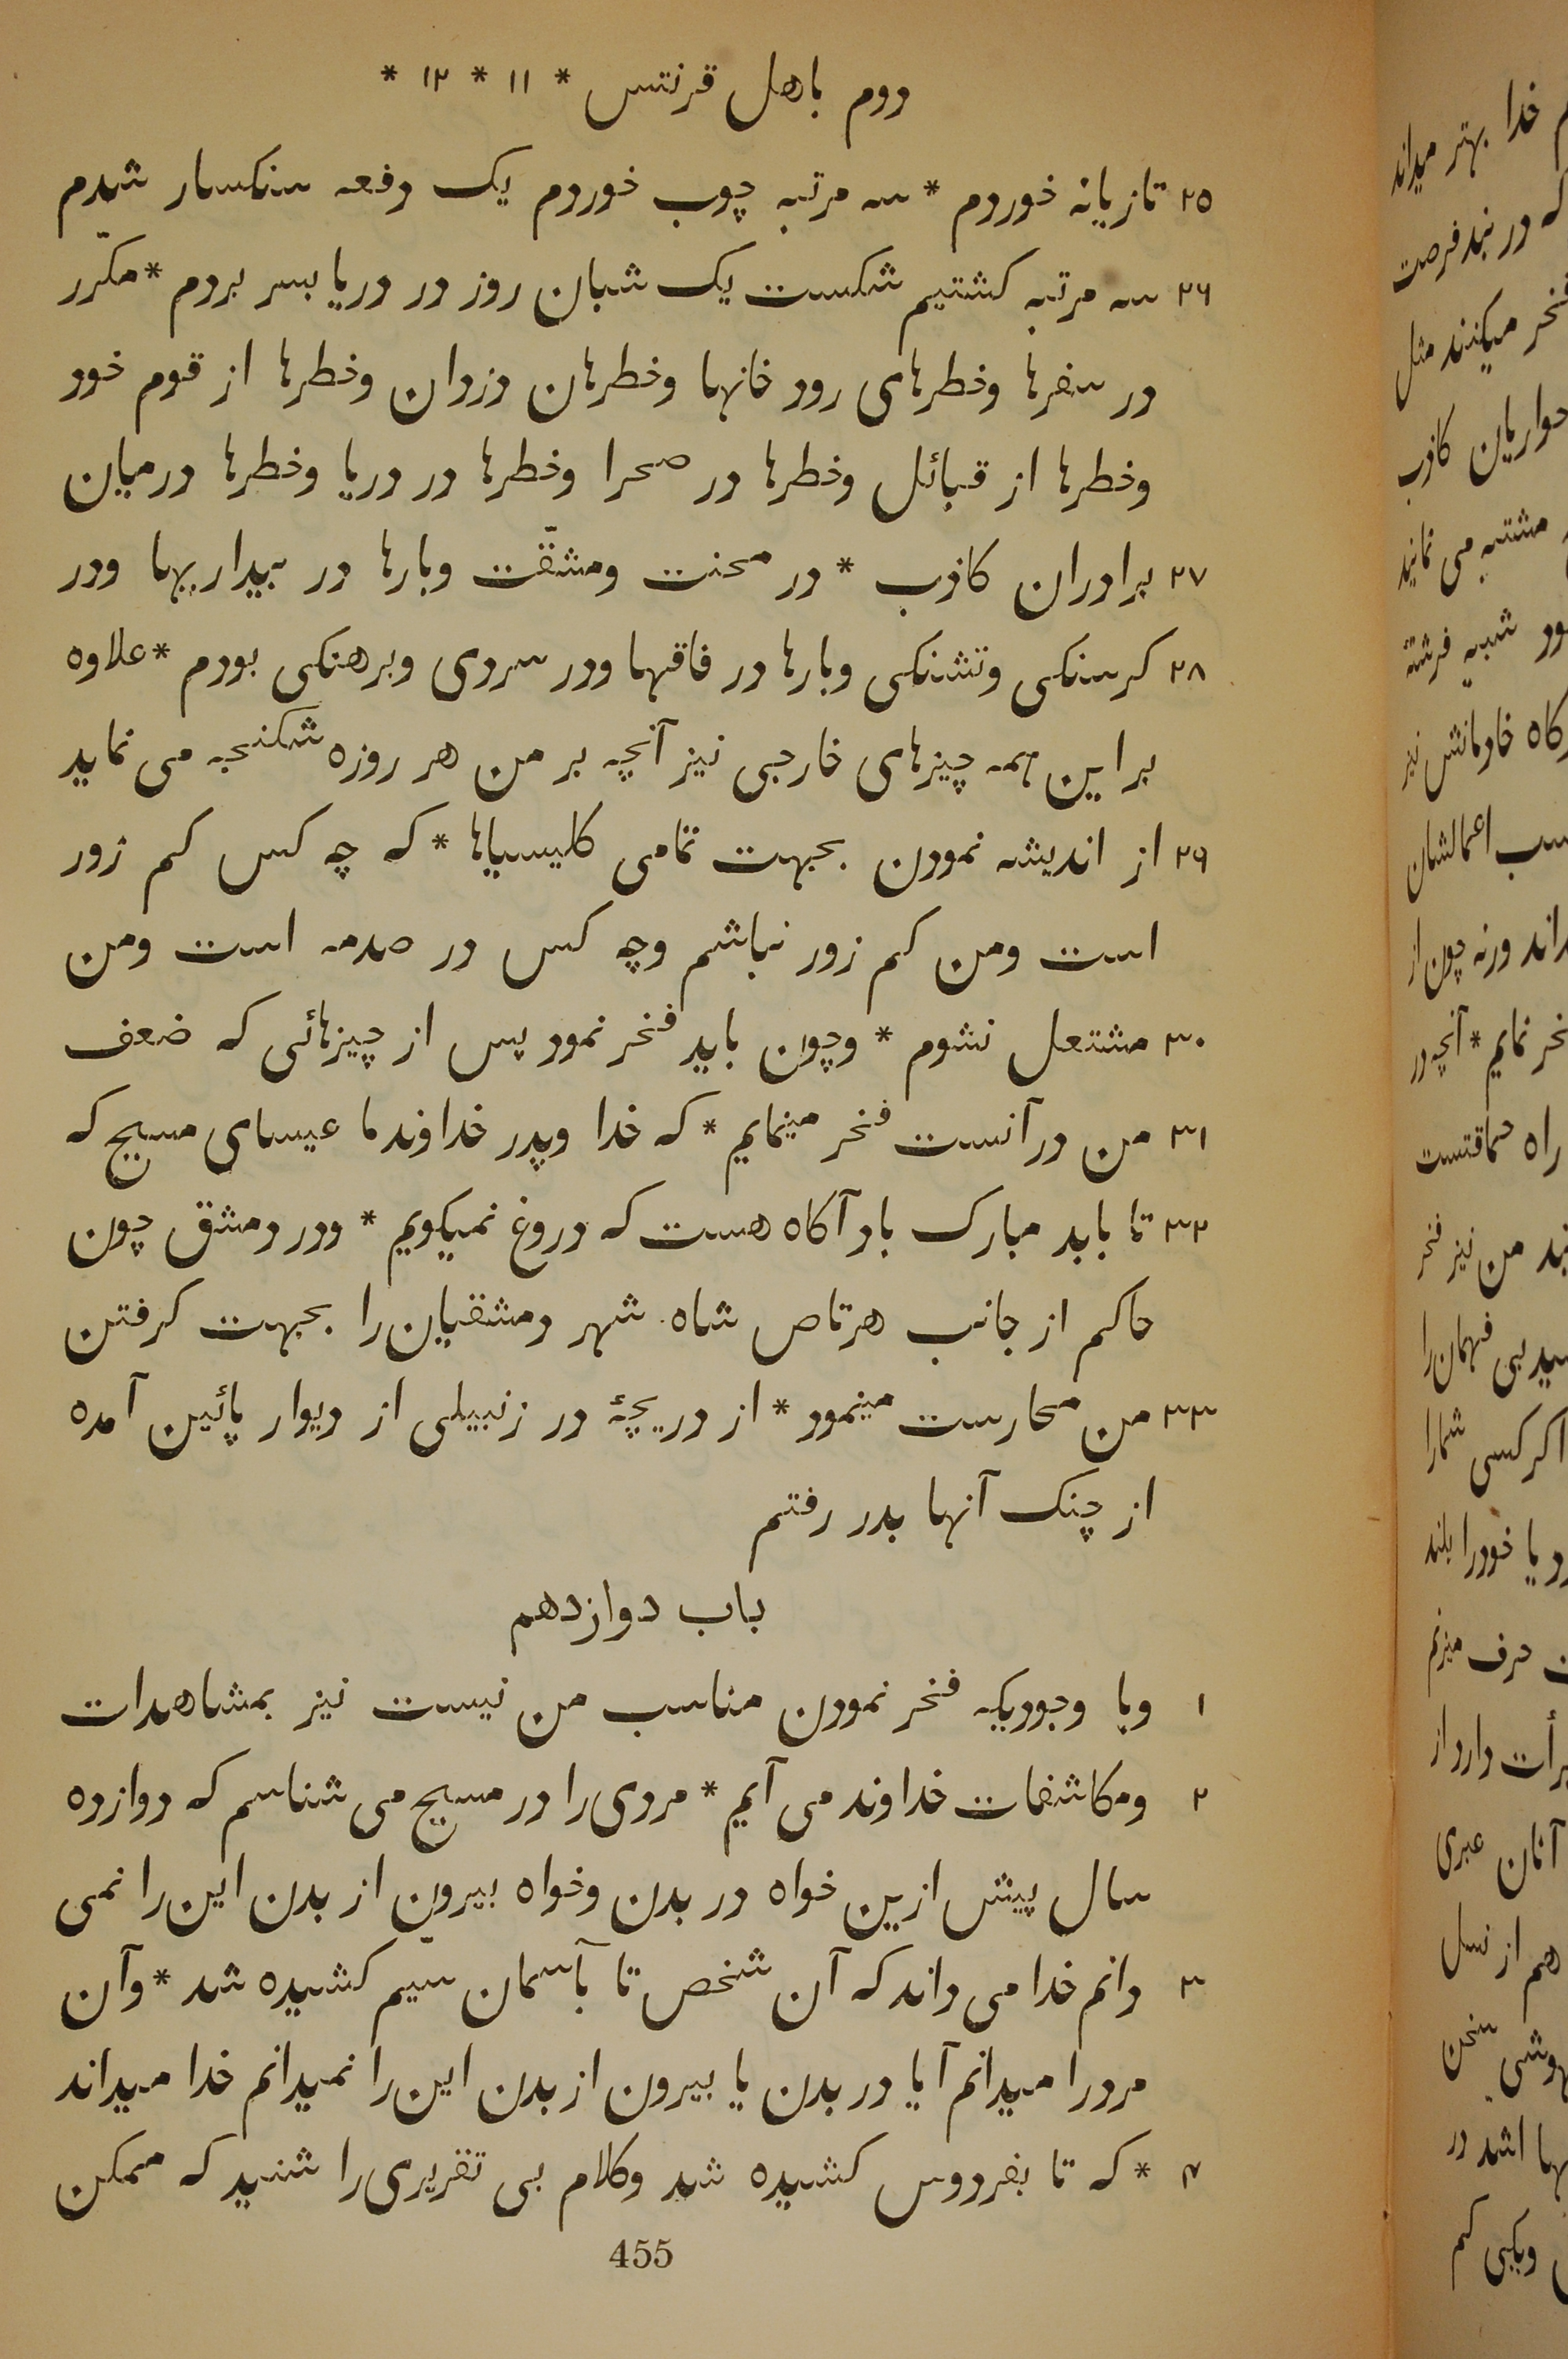 دوم باهل قرنتس * ۱۱ * ۱۲ *
۲۵ تازیانه خوردم * سه مرتبه چوب خوردم یک دفعه سنکسار شدم
۲۶ سه مرتبه کشتیم شکست یک شبان روز در دریا بسر بردم * مکرّر
در سفرها وخطرهای رود خانها وخطرهان دزدان وخطرها از قوم خود
وخطرها از قبائل وخطرها در صحرا وخطرها در دریا وخطرها درمیان
۲۷ برادران کاذب * در محنت ومشقّت وبارها در بیداریها ودر
۲۸ کرسنکی وتشنکی وبارها در فاقها ودر سردی وبرهنکی بودم * علاوه
بر این همه چیزهای خارجی نیز آنچه بر من هر روزه شکنجه می نماید
۲۹ از اندیشه نمودن بجهت تمامی کلیسیاها * که چه کس کم زور
است ومن کم زور نباشم وچه کس در صدمه است ومن
۳۰ مشتعل نشوم * وچون باید فخر نمود پس از چیزهائی که ضعف
۳۱ من درآنست فخر مینمایم * که خدا وپدر خداوند ما عیسای مسیح که
۳۲ تا بابد مبارک باد آکاه هست که دروغ نمیکویم * ودر دمشق چون
حاکم از جانب هرتاص شاه شهر دمشقیان را بجهت کرفتن
۳۳ من محارست مینمود * از دریچۀ در زنبیلی از دیوار پائین آمده
از چنک آنها بدر رفتم
باب دوازدهم
۱ وبا وجودیکه فخر نمودن مناسب من نیست نیز بمشاهدات
۲ ومکاشفات خداوند می آیم * مردی را در مسیح می شناسم که دوازده
سال پیش ازین خواه در بدن وخواه بیرون از بدن این را نمی
۳ دانم خدا می داند که آن شخص تا بآسمان سیّم کشیده شد * وآن
مرد را میدانم آیا در بدن یا بیرون از بدن این را نمیدانم خدا میداند
۴ * که تا بفردوس کشیده شد وکلام بی تقریری را شنید که ممکن
455
خدا بهتر میداند
که در بند فرصت
میکنند مثل
حواریان کاذب
مشتبه می نمایند
شبیه فرشتۀ
خادمانش نیز
اعمالشان
ورنه چون از
نمایم * آنچه در
راه حماقتست
من نیز فخر
بی فهمان را
اکر کسی شمارا
یا خودرا بلند
حرف میزنم
دارد از
آنان عبری
هم از نسل
سخن
اشد در
ویکی کم